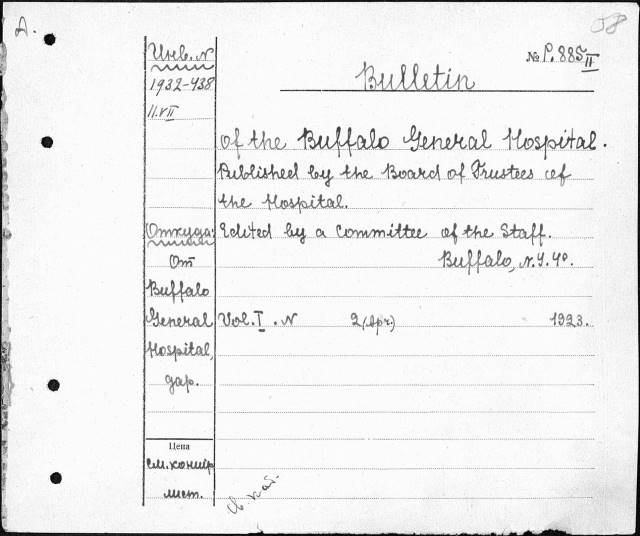 А.
58
Инв. N
1932-438
11.VII
№ P. 885 II
Bulletin
of the Buffalo General Hospital.
Published by the Board of Trustees of
the Hospital.
Откуда:
Edited by a Committee of the Staff.
От
Buffalo, N.Y. 4°.
Buffalo
General
Vol. I. N 2 (Apr.) 1923.
Hospital,
дар.
Цена
см. копир
лист.